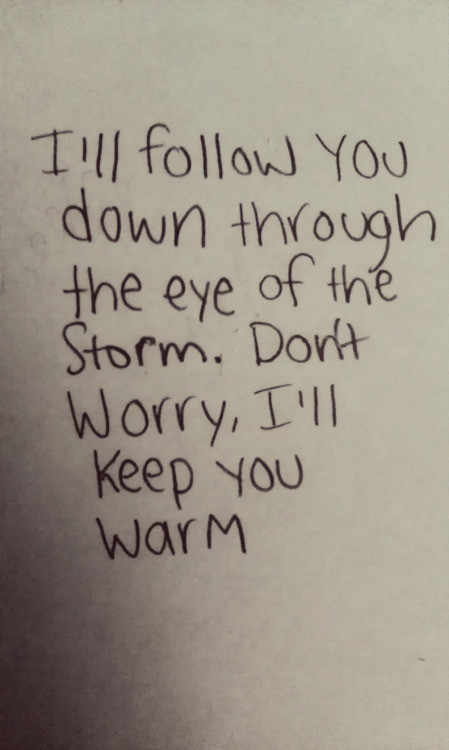 I'll follow You
down through
the eye of the
Storm. Don't
Worry, I'll
Keep you
WarM